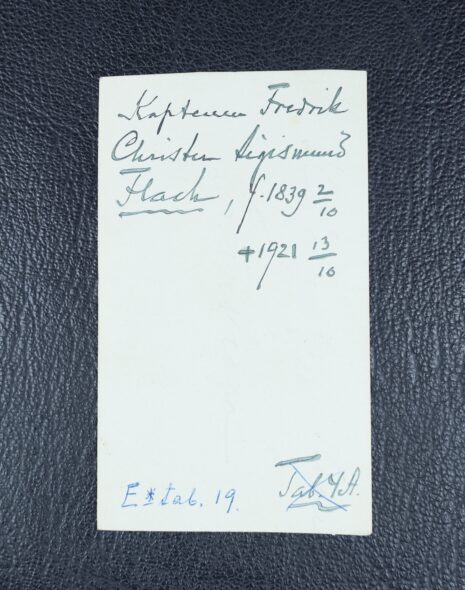 Kaptenen Fredrik
Christer Sigismund
Flach, f. 1839 2/10
+1921 13/10
E* tab. 19.
Tab. 4A.